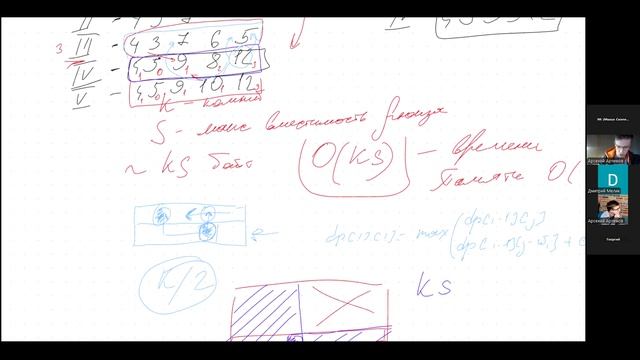 II -
3 III - 4 3 7 6 5
IV - 4, 5₀ 9₁ 8₂ 12₃
V - 4, 5₀ 9₁ 10₁ 12₃
K - камней
S - макс вместимость рюкзака
~ KS байт O(KS) - времени
Памяти O(
dp[i][j] = max dp[i-1][j]
dp[i-1][j-w_i] + c
K/2
KS
D
Арсений Артемов
Дмитрий Мелик
Арсений Артемов
Георгий